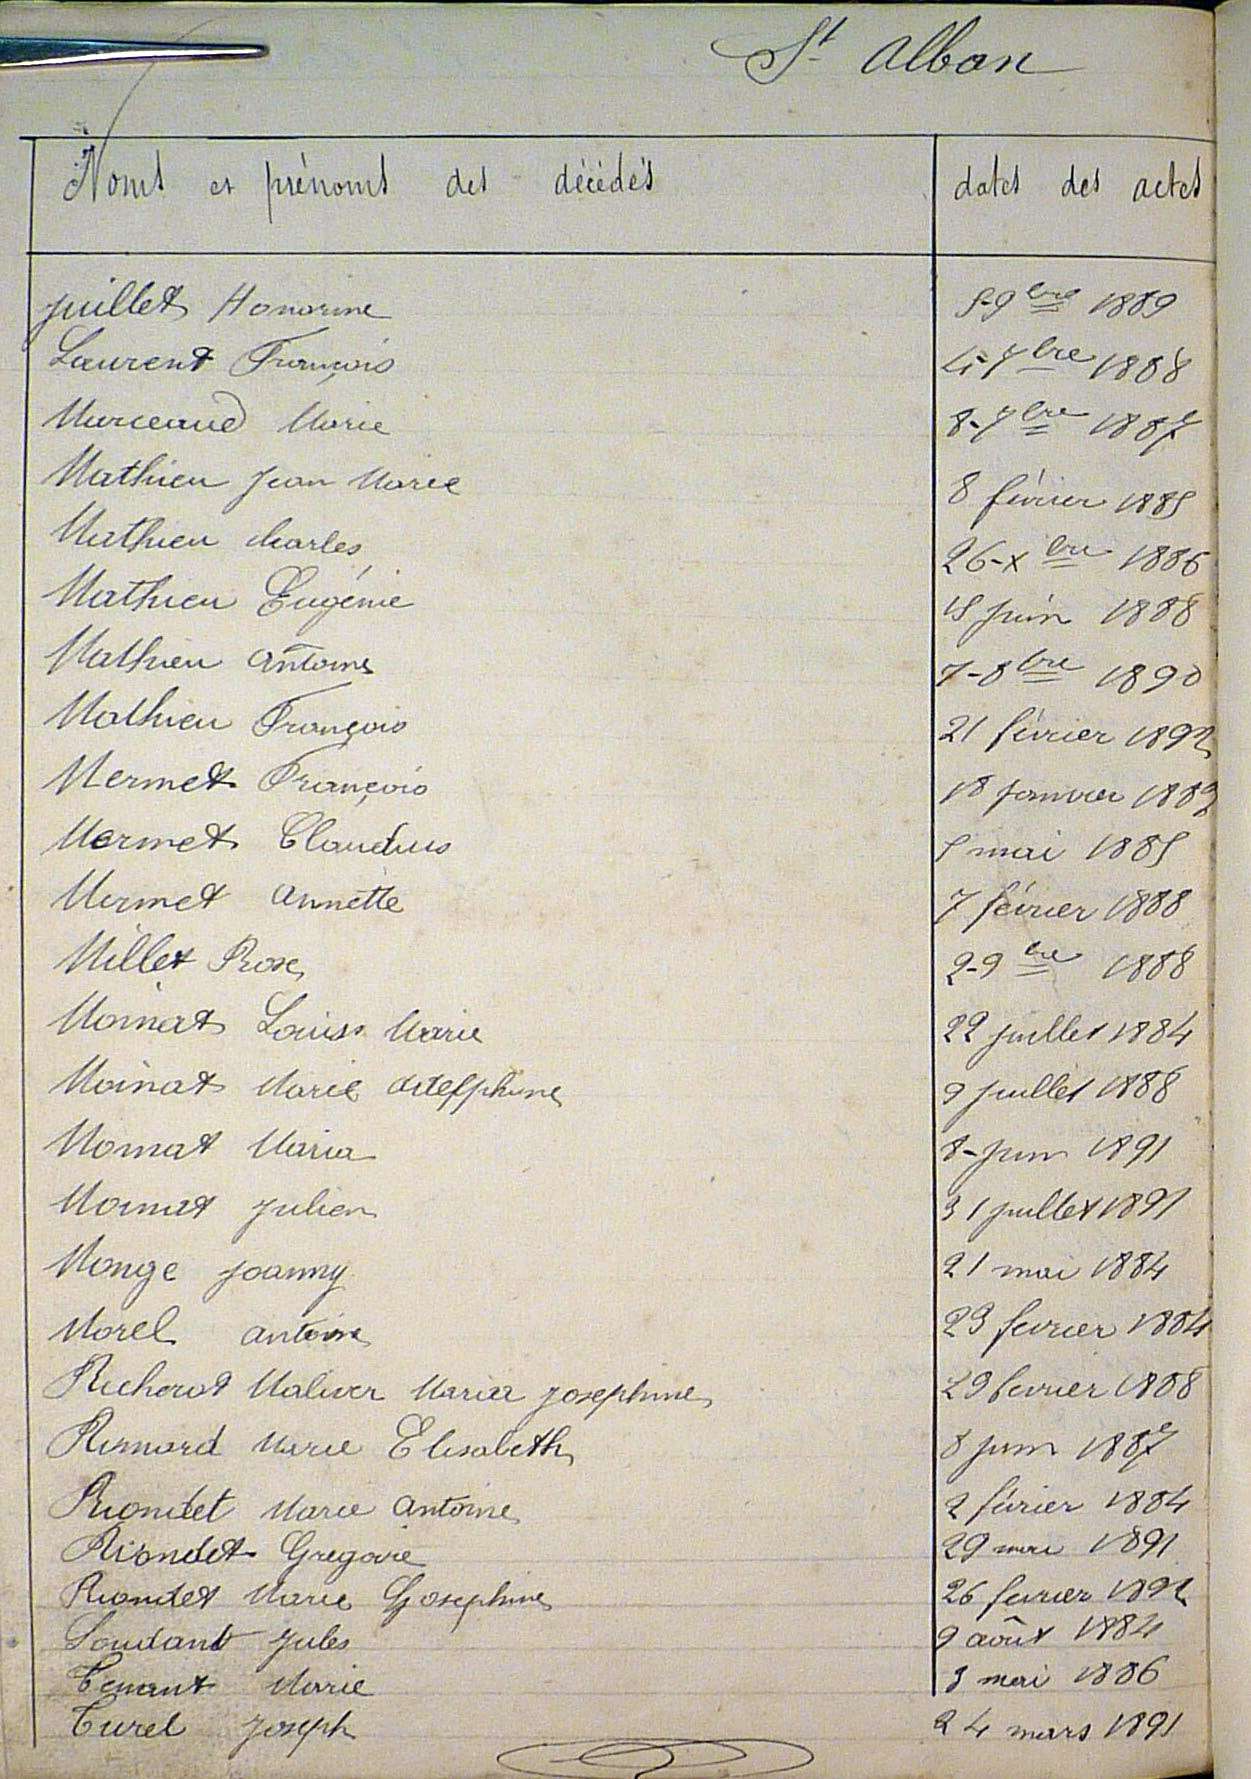 St Alban
Noms et prénoms des décédés dates des actes
Juillet Honorine 5-9bre 1889
Laurent François 4-7bre 1888
Marceaud Marie 8-7bre 1887
Mathieu Jean Marie 8 février 1885
Mathieu Charles 26-xbre 1886
Mathieu Eugénie 15 juin 1888
Mathieu Antoine 7-8bre 1890
Mathieu François 21 février 1892
Mermet François 18 janvier 1889
Mermet Claudius 5 mai 1885
Mermet Annette 7 février 1888
Millet Rose 2-9bre 1888
Moinat Louise Marie 22 juillet 1884
Moinat Marie 9 juillet 1888
Moinat Maria 8-juin 1891
Moinat Julien 31 juillet 1891
Monge Joanny 21 mai 1884
Morel Antoine 23 fevrier 1884
Richerot Maria Josephine 29 fevrier 1888
Marie Elisabeth 8 juin 1887
Riondet Marie Antoine 2 février 1884
Riondet Gregoire 29 mai 1891
Riondet Marie Josephine 26 fevrier 1892
Soudant Jules 9 août 1884
Tenant Marie 3 mai 1886
Turel Joseph 24 mars 1891